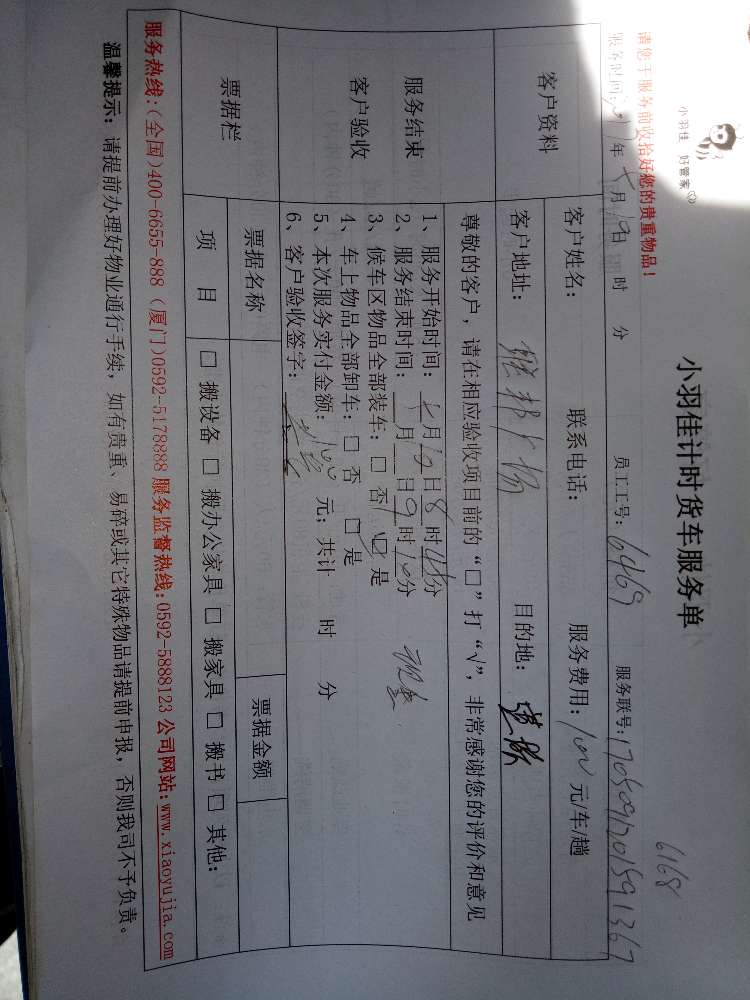 小羽佳 好管家
6168
小羽佳计时货车服务单
请您于服务前收拾好您的贵重物品!
服务时间: 年 月 日 时 分 员工工号: 6469 服务联号: 
客户资料
客户姓名: 联系电话: 服务费用: 100 元/车/趟
客户地址: 目的地:
服务结束
客户验收
尊敬的客户,请在相应验收项目前的“□”打“√”,非常感谢您的评价和意见
1、服务开始时间: 七月19日8时 分
2、服务结束时间: 月 日9时10分
3、候车区物品全部装车: □ 否 ☑ 是
4、车上物品全部卸车: □ 否 □ 是
5、本次服务实付金额: 100 元; 共计 时 分
6、客户验收签字:
票据栏
票据名称 票据金额
项 目 □ 搬设备 □ 搬办公家具 □ 搬家具 □ 搬书 □ 其他:
服务热线:(全国)400-6655-888 (厦门)0592-5178888 服务监督热线:0592-5888123 公司网站:www.xiaoyujia.com
温馨提示: 请提前办理好物业通行手续, 如有贵重、易碎或其它特殊物品请提前申报, 否则我司不予负责。